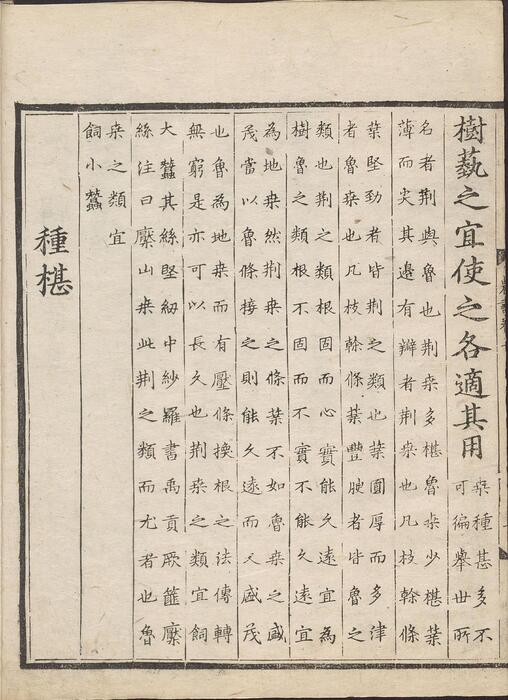 樹蓺之宜使之各適其用
桒種甚多不
可徧舉世所
名者荆與魯也荆桒多椹魯桒少椹葉
薄而尖其邊有瓣者荆桒也凡枝榦條
葉堅勁者皆荆之類也葉圓厚而多津
者魯桒也凡枝榦條葉豐腴者皆魯之
類也荆之類根固而心實能久遠宜為
樹魯之類根不固而不實不能久遠宜
為地桒然荆桒之條葉不如魯桒之盛
茂當以魯條接之則能久遠而又盛茂
也魯為地桒而有壓條換根之法傳轉
無窮是亦可以長久也荆桒之類宜飼
大蠶其絲堅紉中紗羅書禹貢厥篚檿
絲注曰檿山桒此荆之類而尤者也魯
桒之類宜
飼小蠶
種椹